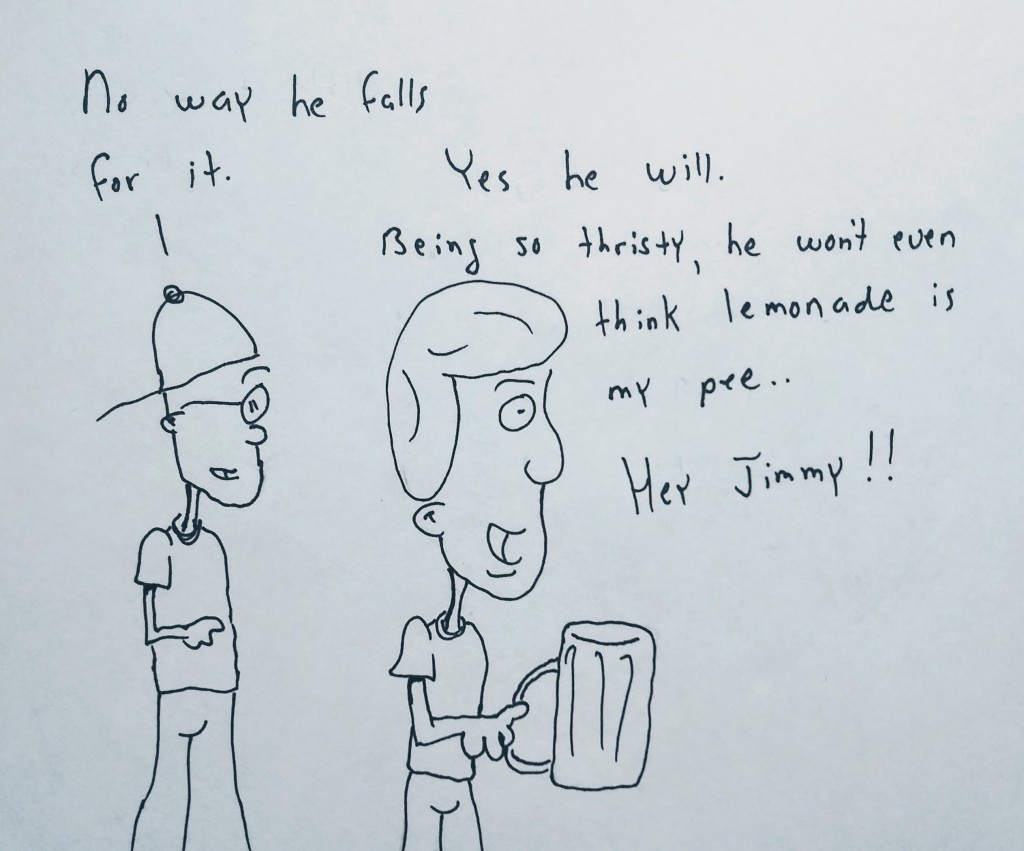 No way he falls
for it.
Yes he will.
Being so thristy, he won't even
think lemonade is
my pee..
Hey Jimmy!!